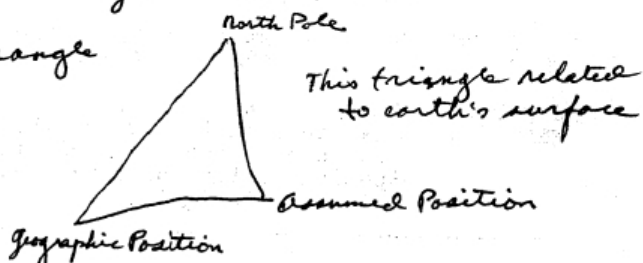 North Pole
angle
This triangle related
to earth's surface
Assumed Position
Geographic Position